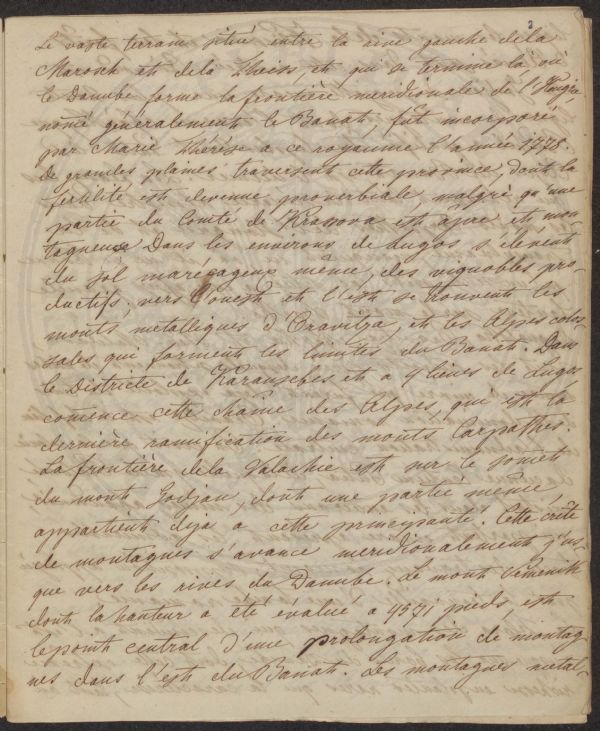 2
Le vaste terrain situé entre la rive gauche dela
Marosch et dela Theiss, et qui se termine là où
le Danube forme la frontière meridionale de l'Hugrie,
nomé généralement le Banat, fût incorporé
par Marie Thérèse a ce royaume l'année 1778.
de grandes plaines traversent cette province, dont la
fertilité est devenue proverbiale, malgré qu'une
partie du Comté de Krassova est apre et mon-
tagneuse Dans les environs de Lugos s'élévent
du sol marécageux même, des vignobles pro-
ductifs; vers l'ouest et l'est se trouvent les
monts metalliques d'Oravitza, et les Alpes colos-
sales qui forment les limites du Banat. Dans
le Districte de Karansebes et a 4 lieues de Lugos
comence cette chaine des Alpes, qui est la
dernière ramification des monts Carpathes.
La frontière dela Valachie est sur le somet
du mont Godjan, dont une partie même
appartient deja a cette principauté. Cette crête
de montagnes s'avance meridionalement jus-
que vers les rives du Danube. Le mont Semenik
dont la hauteur a été évalué a 4571 pieds, est
le point central d'une prolongation de montag-
nes dans l'est du Banat. Les montagnes metal-